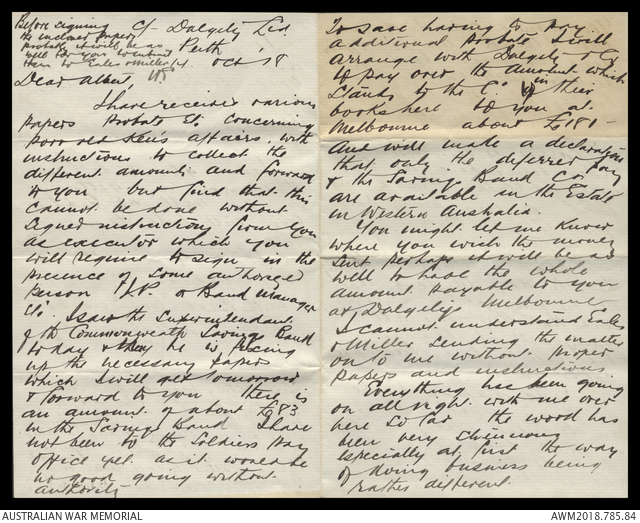 Before signing
the enclosed papers
probably it will be as
well for you to submit
them to Eales & Miller
C/- Dalgety Ltd
Perth
Oct '18
Dear Albert,
I have received various
papers Probate &c concerning
poor old Ken's affairs, with
instructions to collect the
different amounts and forward
to you but find that this
cannot be done without
signed instructions from you
as executor which you
will require to sign in the
presence of some authorised
person J.P. or Bank Manager
&c. I saw the Superintendant
of the Commonwealth Saving Bank
today & he is fixing
up the necessary papers
which I will get tomorrow
& forward to you there is
an amount of about £83
in the Savings Bank I have
not been to the Soldiers Pay
Office yet as it would be
no good going without
authority
To save having to pay
additional Probate I will
arrange with Dalgety & Co
to pay over the amount which
stands to the C. in their
books here to you at
Melbourne about £181-
and will make a declaration
that only the deferred pay
& the Saving Bank Cr
are available in the Estate
in Western Australia.
You might let me know
where you wish the money
sent perhaps it will be as
well to have the whole
amount payable to you
at Dalgetys Melbourne
I cannot understand Eales
& Miller sending the matter
on to me without proper
papers and instructions
Everything has been going
on all right with me over
here so far the work has
been very
especially at first the way
of doing business being
rather different.
AUSTRALIAN WAR MEMORIAL
AWM2018.785.84